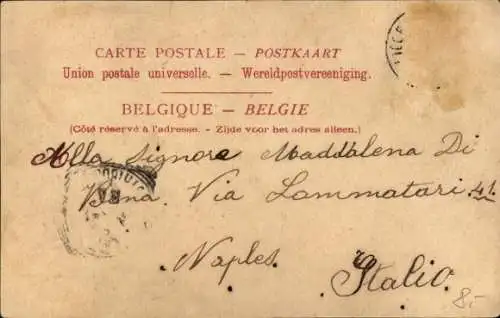 CARTE POSTALE — POSTKAART
Union postale universelle. — Wereldpostvereeniging.
BELGIQUE — BELGIE
(Côté réservé à l'adresse. — Zijde voor het adres alleen.)
Alla Signora Maddalena Di
Bena. Via Lammatari 41.
Naples.
Italio.
8.-